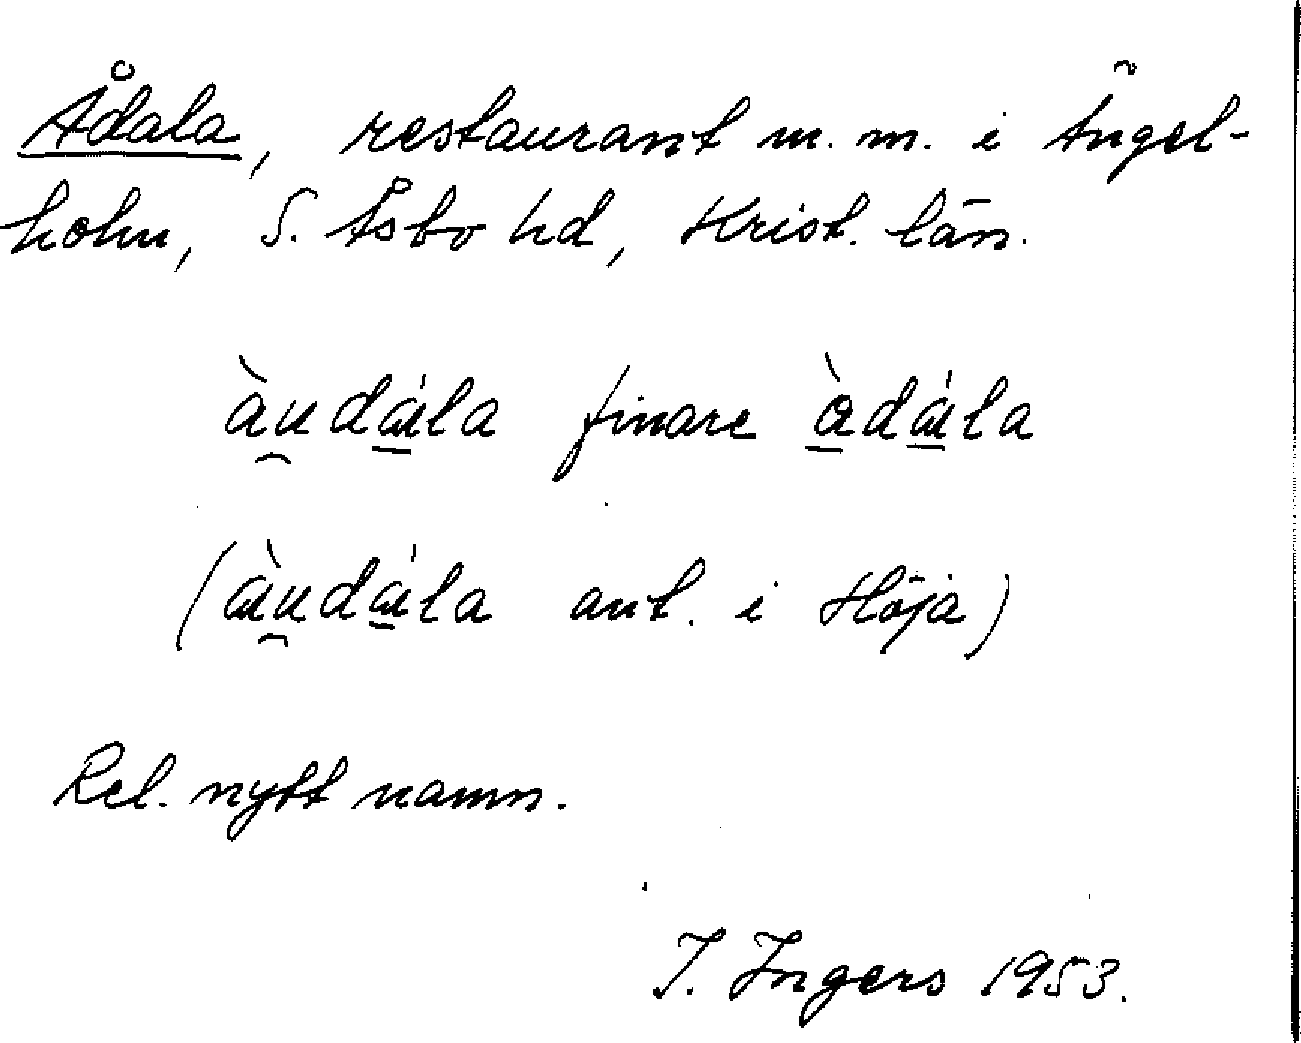 Ådala, restaurant m. m. i Ängel-
holm, S. Åsbo hd, Krist. län.
àu̯dɑ́la finare àdɑ́la
(ɑ̀u̯dɑ́la ant. i Höja)
Rel. nytt namn.
I. Ingers 1953.